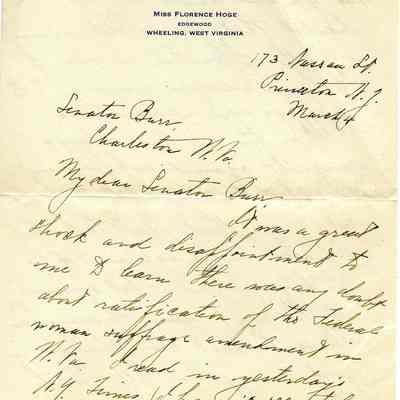 MISS FLORENCE HOGE
EDGEWOOD
WHEELING, WEST VIRGINIA
173 Nassau St.
Princeton N.J.
March 4
Senator Burr,
Charleston W. Va.
My dear Senator Burr,
It was a great
shock and disappointment to
me to learn there was any doubt
about ratification of the Federal
woman suffrage amendment in
W. Va. I read in yesterday's
N.Y. Times